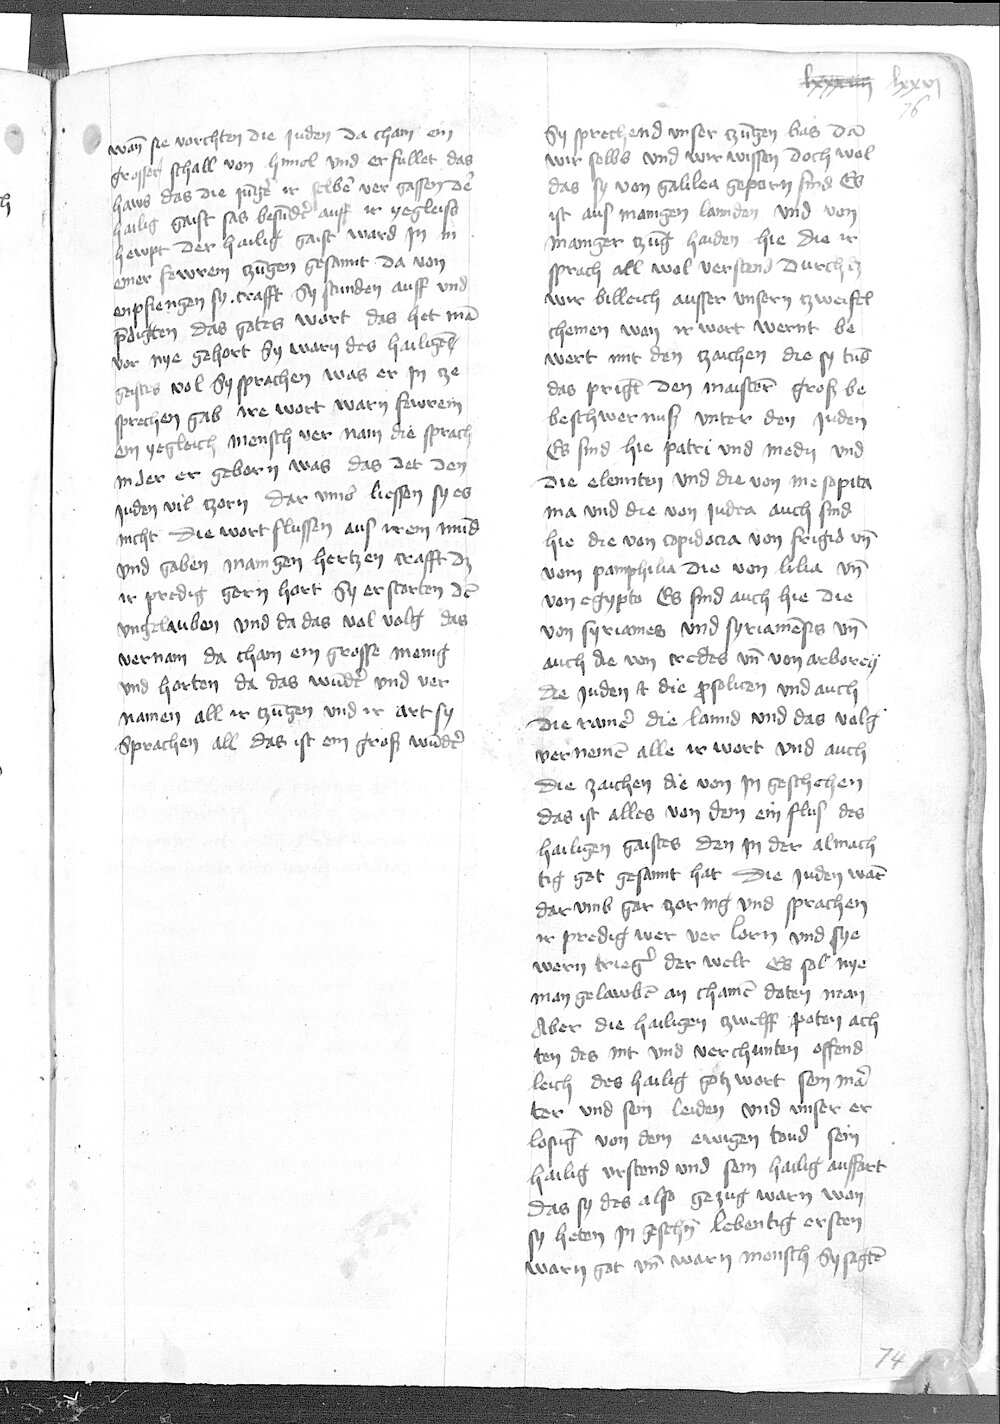 lxxxiiii lxxvj
76
wañ sie vorchten die juden da cham ein
grosser schall von himel vnd er fullet das
haws das die jūgē ir selbē ver gassen dē
hailig gaist sas besūdē auff ir yegleiſs
hewpt der hailig gaist ward jn in
einer fewrein tzūgen gesannt da von
enpfiengen sy crafft Sy stunden auff vnd
p̄digten das gotes wort das het mā
vor nye gehort Sy warn des hailigē
geistes vol Sy sprachen was er jn tze
sprechen gab ire wort warn fewrein
ein yegleich mensch ver nam die sprach
in der er geborn was das det den
juden vil tzorn dar vmb liessen sy es
nicht Die wort flussen aus irem mūd
vnd gaben manigen hertzen crafft dz
ir predig gern hort Sy erstorten dē
vngelauben vnd da das vol volg das
vernam da cham ein grosse menig
vnd horten da das wūdē vnd ver
namen all ir tzūgen vnd ir art sy
Sprachen all das ist ein groß wūdē
Sy sprechend vnser tzūgen bas dā
wir selbs vnd wir wissen doch wol
das sy von galilea geporn sind Es
ist aus manigen lannden vnd von
maniger tzūg haiden hie die ir
sprach all wol verstend durch dz
wir billeich ausser vnsern tzweifel
chemen wan ir wort wernt be
wert mit den tzaichen die sy tūd
das prigt den maistern groß be
beschwernuß vnter den juden
Es sind hie patri vnd medij vnd
die elemiten vnd die von mesopita
ma vnd die von judea auch sind
hie die von copidocia von frigid vn̄
vom pamphilia die von lilia vn̄
von egypto Es sind auch hie die
von syriames vnd syriamēses vn̄
auch die von credes vn̄ von arborey
die juden & die p̄soliten vnd auch
die romē die lannd vnd das volg
vernemē alle ir wort vnd auch
die zaichen die von jn geschehen
das ist alles von dem ein flus des
hailigen gaistes den jn der almach
tig got gesannt hat Die juden warē
dar vmb gar tzornig vnd sprachen
ir predig wer ver lorn vnd sye
wern triegē der welt Es sol nye
man gelawbē an chainē doten man
Aber die hailigen tzwelff poten ach
ten des nit vnd verchunten offend
leich des hailig gotz wort sein mā
ter vnd sein leiden vnd vnser er
losūg von dem ewigen toud sein
hailig vrstend vnd sein hailig auffart
das sy des also gezug warn wan
sy heten jn gesehn̄ lebentig ersten
warn got vn̄ warn mensch Sy sagtē
74